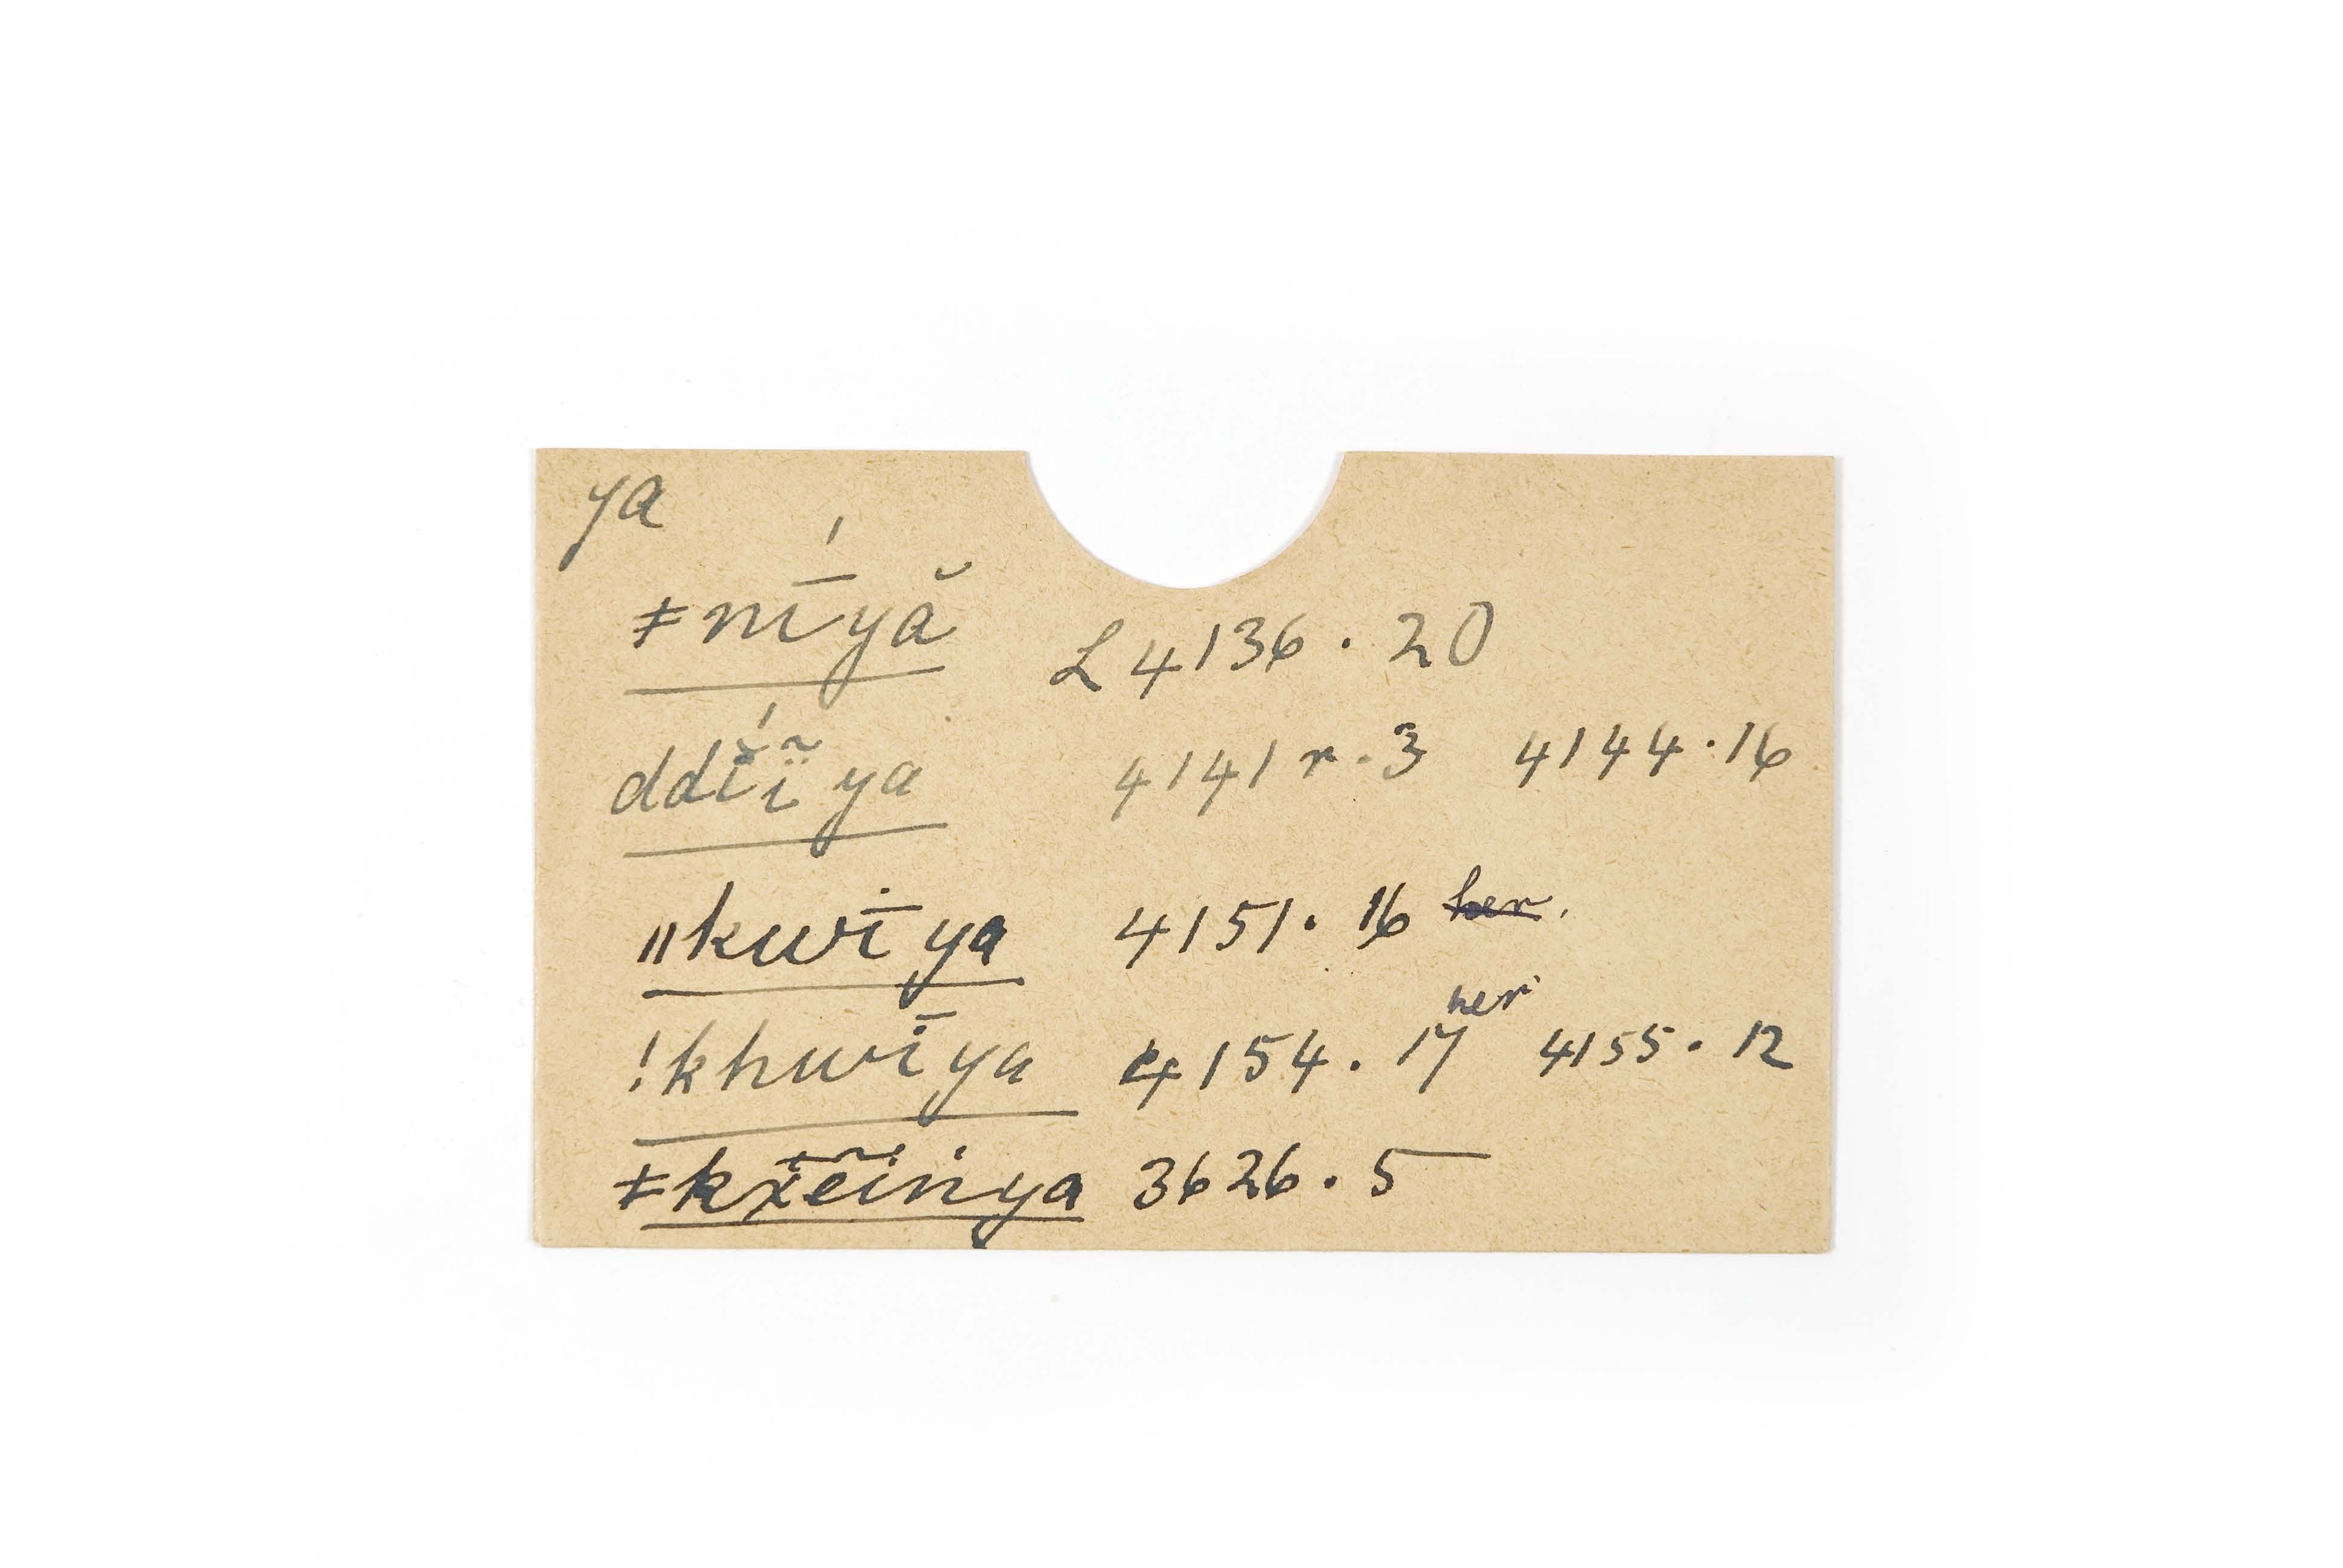 ya
ǂnī́yă L 4136 · 20
ddĭ́ĩ̤ya 4141 r · 3 4144 · 16
ǁkwīya 4151 · 16 her.
ǃkhwīya 4154 · 17 her 4155 · 12
ǂkx̃ẽiṅya 3626 · 5